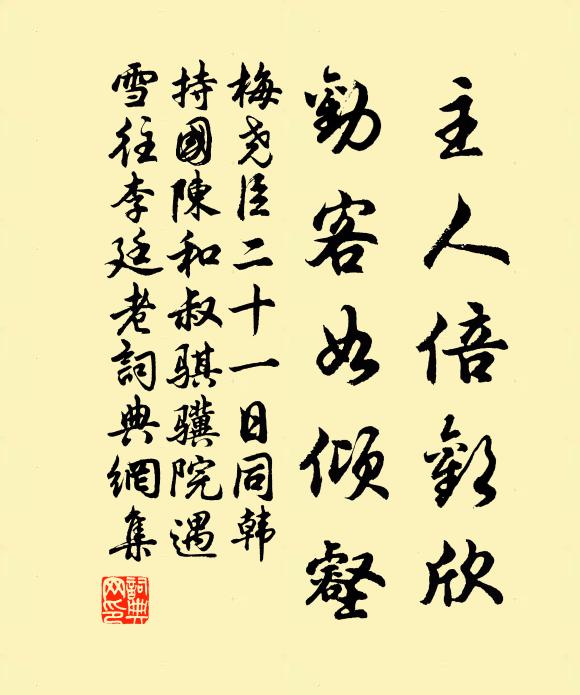 主人倍歡欣
勸客如傾壑
梅堯臣二十一日同韩
持國陳和叔骐骥院遇
雪往李廷老詞典網集
詞典網印